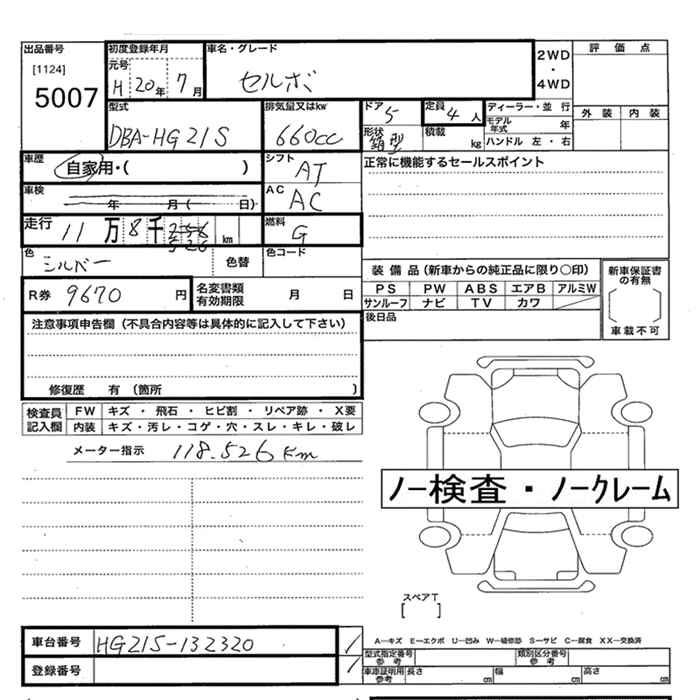 出品番号
[1124]
5007
初度登録年月
元号
H 20年 7月
車名・グレード
セルボ
2WD
・
4WD
評価点
外装 内装
型式
DBA-HG21S
排気量又はkw
660cc
ドア
5
形状
箱型
定員
4人
積載
kg
ディーラー・並行
モデル年式 年
ハンドル 左・右
車歴
自家用・( )
シフト
AT
正常に機能するセールスポイント
車検
年 月( 日)
AC
AC
走行
11万 8千 526 km
燃料
G
色
シルバー
色替
色コード
装備品(新車からの純正品に限り○印)
PS PW ABS エアB アルミW
サンルーフ ナビ TV カワ
新車保証書の有無
車載不可
R券 9670 円
名変書類有効期限 月 日
後日品
注意事項申告欄(不具合内容等は具体的に記入して下さい)
修復歴 有 (箇所 )
検査員記入欄
FW キズ・飛石・ヒビ割・リペア跡・X要
内装 キズ・汚レ・コゲ・穴・スレ・キレ・破レ
メーター指示 118.526 Km
ノー検査・ノークレーム
スペアT
[ ]
車台番号 HG21S-132320
登録番号
A-キズ E-エクボ U-凹み W-補修跡 S-サビ C-腐食 XX-交換済
型式指定番号 参考
類別区分番号 参考
車庫証明用 参考 長さ cm 幅 cm 高さ cm